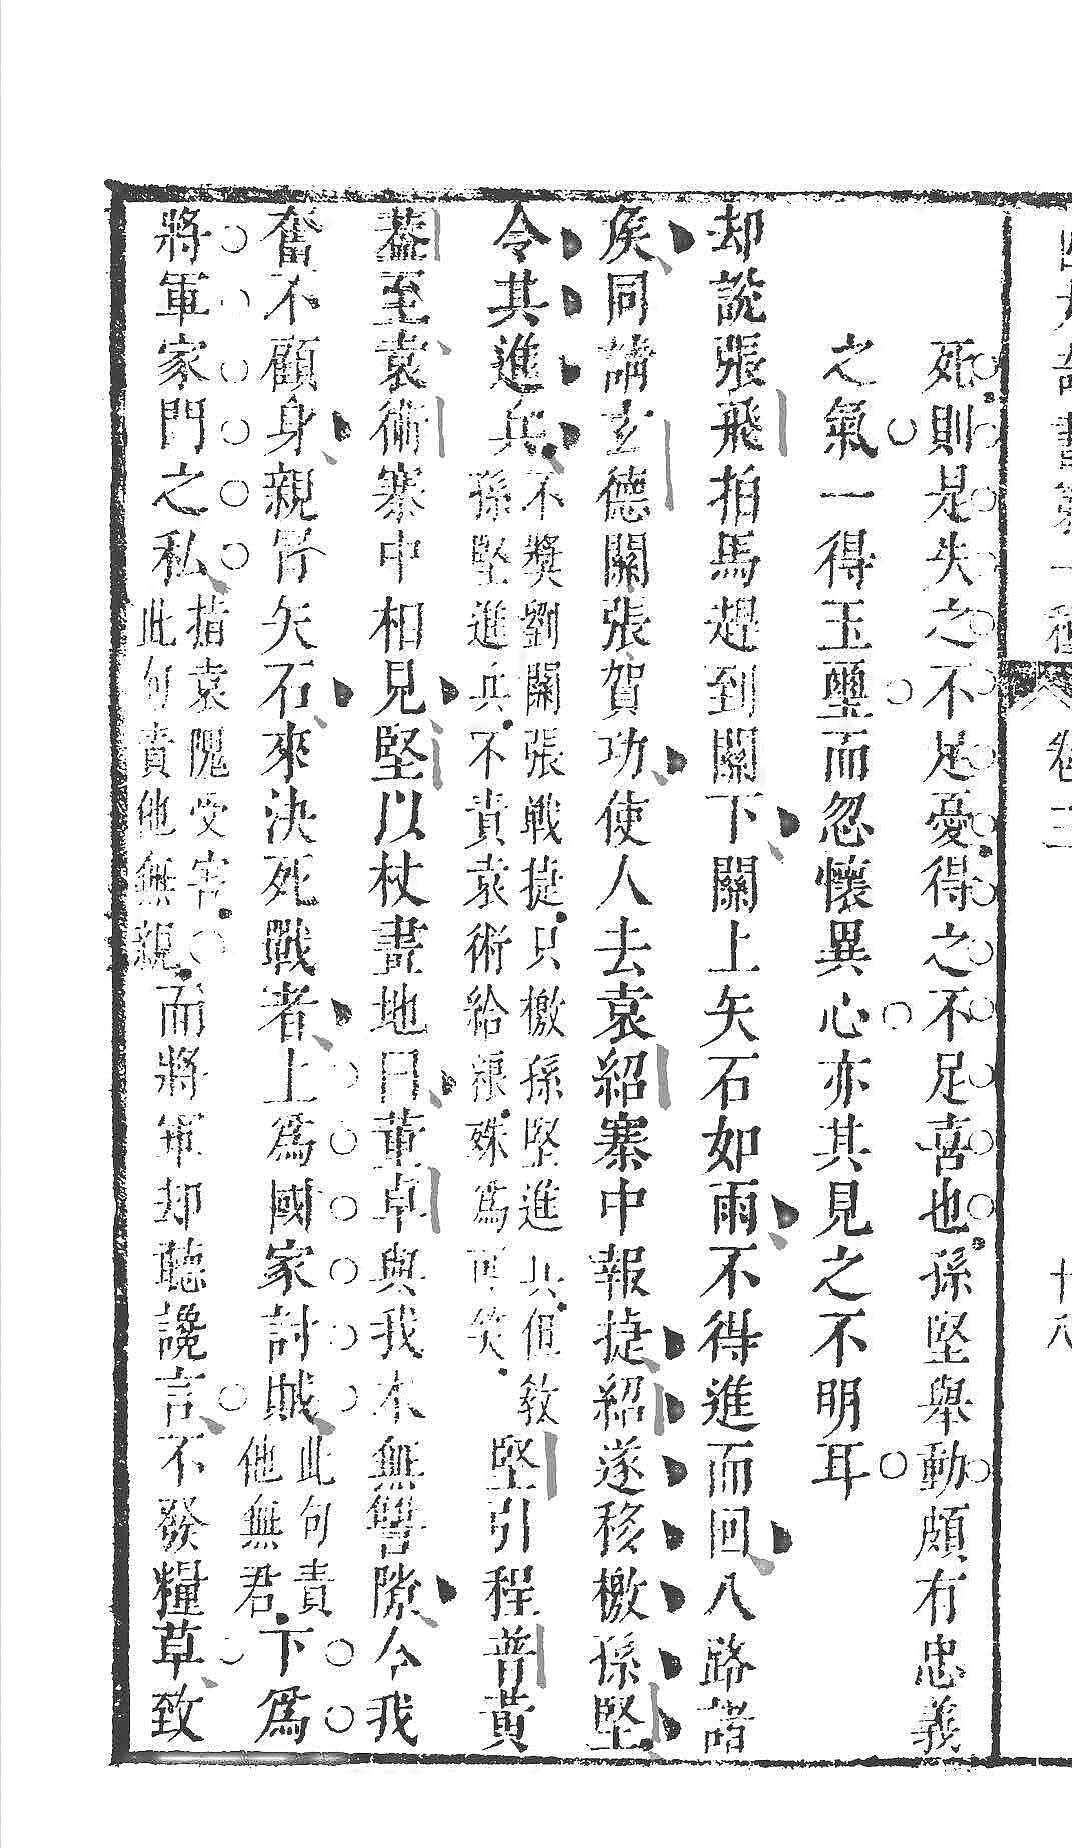 四大奇書第一種 卷三 十八
死則是失之不足憂得之不足喜也孫堅舉動頗有忠義
之氣一得玉璽而忽懷異心亦其見之不明耳
却說張飛拍馬趕到關下關上矢石如雨不得進而回八路諸
侯同請玄德關張賀功使人去袁紹寨中報捷紹遂移檄孫堅
令其進兵不獎劉關張戰捷只檄孫堅進兵但教孫堅進兵不責袁術給糧殊爲可笑堅引程普黃
蓋至袁術寨中相見堅以杖畫地曰董卓與我本無讐隙今我
奮不顧身親冒矢石來決死戰者上爲國家討賊此句責他無君下爲
將軍家門之私指袁隗受害此句責他無親而將軍却聽讒言不發糧草致